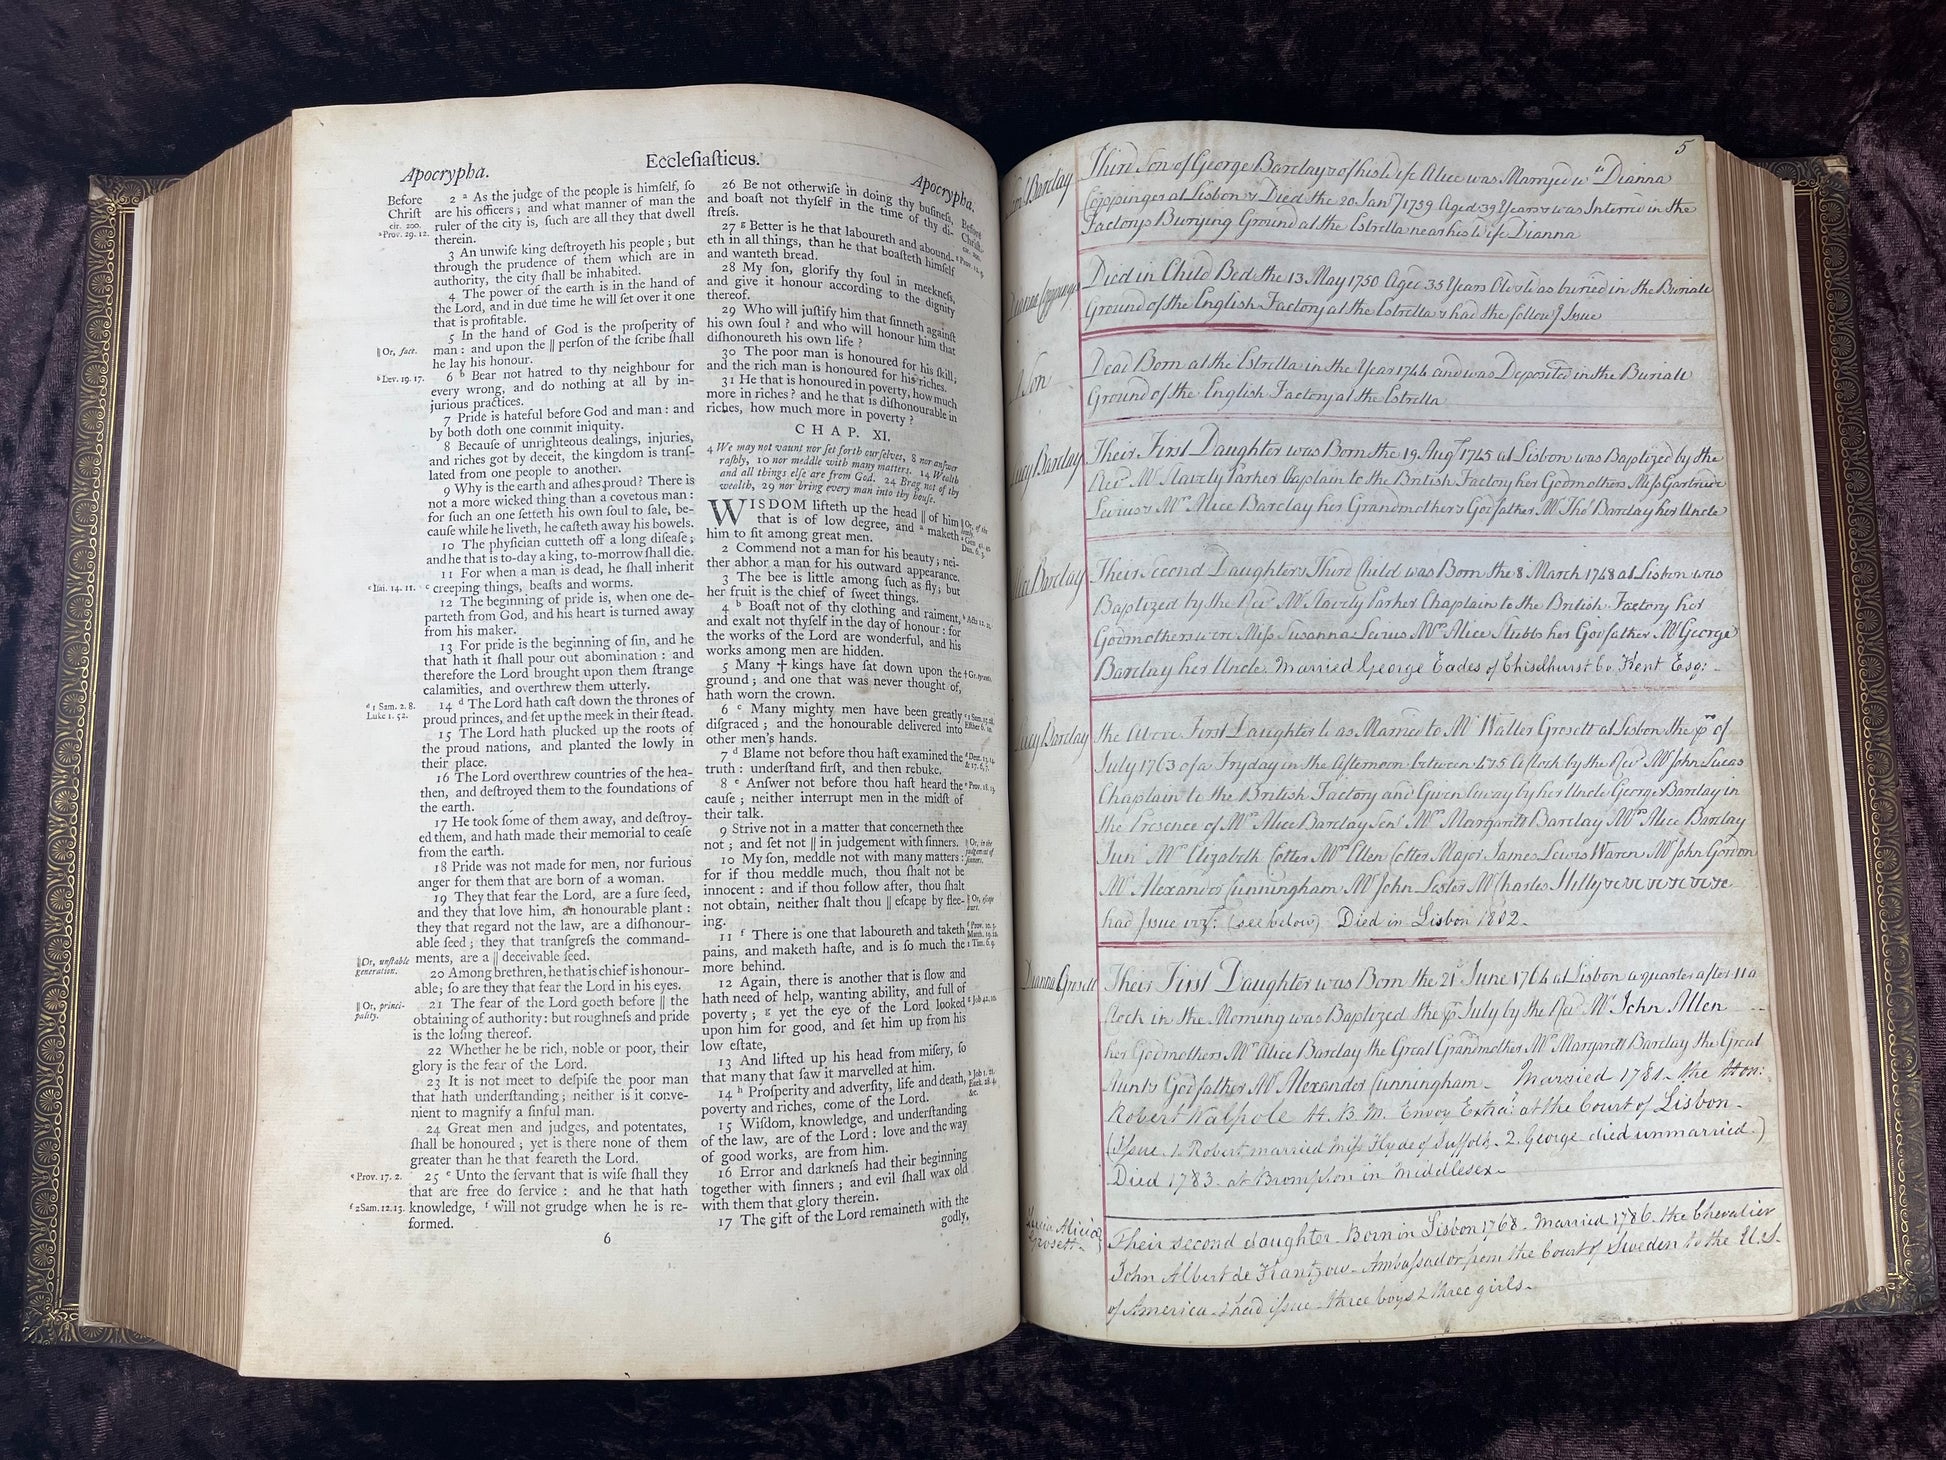 Apocrypha.
Eccleſiaſticus.
Apocrypha.
Before
Chriſt
cir. 200.
ᵃ Prov. 29. 12.
2 ᵃ As the judge of the people is himſelf, ſo
are his officers; and what manner of man the
ruler of the city is, ſuch are all they that dwell
therein.
3 An unwiſe king deſtroyeth his people; but
through the prudence of them which are in
authority, the city ſhall be inhabited.
4 The power of the earth is in the hand of
the Lord, and in due time he will ſet over it one
that is profitable.
5 In the hand of God is the proſperity of
‖ Or, face.
man: and upon the ‖ perſon of the ſcribe ſhall
he lay his honour.
ᵇ Lev. 19. 17.
6 ᵇ Bear not hatred to thy neighbour for
every wrong, and do nothing at all by in-
jurious practices.
7 Pride is hateful before God and man: and
by both doth one commit iniquity.
8 Becauſe of unrighteous dealings, injuries,
and riches got by deceit, the kingdom is tranſ-
lated from one people to another.
9 Why is the earth and aſhes proud? There is
not a more wicked thing than a covetous man:
for ſuch an one ſetteth his own ſoul to ſale, be-
cauſe while he liveth, he caſteth away his bowels.
10 The phyſician cutteth off a long diſeaſe;
and he that is to-day a king, to-morrow ſhall die.
11 For when a man is dead, he ſhall inherit
ᶜ Iſai. 14. 11.
ᶜ creeping things, beaſts and worms.
12 The beginning of pride is, when one de-
parteth from God, and his heart is turned away
from his maker.
13 For pride is the beginning of ſin, and he
that hath it ſhall pour out abomination: and
therefore the Lord brought upon them ſtrange
calamities, and overthrew them utterly.
ᵈ 1 Sam. 2. 8.
Luke 1. 52.
14 ᵈ The Lord hath caſt down the thrones of
proud princes, and ſet up the meek in their ſtead.
15 The Lord hath plucked up the roots of
the proud nations, and planted the lowly in
their place.
16 The Lord overthrew countries of the hea-
then, and deſtroyed them to the foundations of
the earth.
17 He took ſome of them away, and deſtroy-
ed them, and hath made their memorial to ceaſe
from the earth.
18 Pride was not made for men, nor furious
anger for them that are born of a woman.
19 They that fear the Lord, are a ſure ſeed,
and they that love him, an honourable plant:
they that regard not the law, are a diſhonour-
able ſeed; they that tranſgreſs the command-
‖ Or, unſtable
generation.
ments, are a ‖ deceivable ſeed.
20 Among brethren, he that is chief is honour-
able; ſo are they that fear the Lord in his eyes.
‖ Or, princi-
pality.
21 The fear of the Lord goeth before ‖ the
obtaining of authority: but roughneſs and pride
is the loſing thereof.
22 Whether he be rich, noble or poor, their
glory is the fear of the Lord.
23 It is not meet to deſpiſe the poor man
that hath underſtanding; neither is it conve-
nient to magnify a ſinful man.
24 Great men and judges, and potentates,
ſhall be honoured; yet is there none of them
greater than he that feareth the Lord.
ᵉ Prov. 17. 2.
25 ᵉ Unto the ſervant that is wiſe ſhall they
that are free do ſervice: and he that hath
ᶠ 2 Sam. 12. 13.
knowledge, ᶠ will not grudge when he is re-
formed.
26 Be not otherwiſe in doing thy buſineſs,
and boaſt not thyſelf in the time of thy di-
ſtreſs.
27 ᵍ Better is he that laboureth and abound-
eth in all things, than he that boaſteth himſelf
and wanteth bread.
28 My ſon, glorify thy ſoul in meekneſs,
and give it honour according to the dignity
thereof.
29 Who will juſtify him that ſinneth againſt
his own ſoul? and who will honour him that
diſhonoureth his own life?
30 The poor man is honoured for his ſkill,
and the rich man is honoured for his riches.
31 He that is honoured in poverty, how much
more in riches? and he that is diſhonourable in
riches, how much more in poverty?
CHAP. XI.
4 We may not vaunt nor ſet forth ourſelves, 8 nor anſwer
raſhly, 10 nor meddle with many matters. 14 Wealth
and all things elſe are from God. 24 Brag not of thy
wealth, 29 nor bring every man into thy houſe.
WISDOM lifteth up the head ‖ of him
that is of low degree, and ᵃ maketh
him to ſit among great men.
2 Commend not a man for his beauty; nei-
ther abhor a man for his outward appearance.
3 The bee is little among ſuch as fly; but
her fruit is the chief of ſweet things.
4 ᵇ Boaſt not of thy clothing and raiment,
ᵇ Acts 12. 21.
and exalt not thyſelf in the day of honour: for
the works of the Lord are wonderful, and his
works among men are hidden.
5 Many † kings have ſat down upon the
ground; and one that was never thought of,
hath worn the crown.
6 ᶜ Many mighty men have been greatly
diſgraced; and the honourable delivered into
other men's hands.
7 ᵈ Blame not before thou haſt examined the
truth: underſtand firſt, and then rebuke.
8 ᵉ Anſwer not before thou haſt heard the
ᵉ Prov. 18. 13.
cauſe; neither interrupt men in the midſt of
their talk.
9 Strive not in a matter that concerneth thee
not; and ſet not ‖ in judgement with ſinners.
‖ Or, in the
judgement of
ſinners.
10 My ſon, meddle not with many matters:
for if thou meddle much, thou ſhalt not be
innocent: and if thou follow after, thou ſhalt
not obtain, neither ſhalt thou ‖ eſcape by flee-
ing.
11 ᶠ There is one that laboureth and taketh
pains, and maketh haſte, and is ſo much the
more behind.
12 Again, there is another that is ſlow and
hath need of help, wanting ability, and full of
poverty; ᵍ yet the eye of the Lord looked
ᵍ Job 42. 10.
upon him for good, and ſet him up from his
low eſtate,
13 And lifted up his head from miſery, ſo
that many that ſaw it marvelled at him.
14 ʰ Proſperity and adverſity, life and death,
ʰ Job 1. 21.
Ezek. 28. 4.
&c.
poverty and riches, come of the Lord.
15 Wiſdom, knowledge, and underſtanding
of the law, are of the Lord: love and the way
of good works, are from him.
16 Error and darkneſs had their beginning
together with ſinners; and evil ſhall wax old
with them that glory therein.
17 The gift of the Lord remaineth with the
godly,
6
5
Barclay
Third Son of George Barclay & of his Wife Alice was Marryed to Dianna
Coppinger at Lisbon & Died the 20 Janʸ 1759 Aged 39 Years & was Interred in the
Factorys Burying Ground at the Estrella near his Wife Dianna
Died in Child Bed the 13 May 1750 Aged 35 Years Old & was buried in the Buriall
Ground of the English Factory at the Estrella & had the follow.g Issue
A Son
Dead Born at the Estrella in the Year 1744 and was Deposited in the Buriall
Ground of the English Factory at the Estrella
Lucy Barclay
Their First Daughter was Born the 19 Augᵗ 1745 at Lisbon was Baptized by the
Revᵈ Mʳ Stavely Parker Chaplain to the British Factory her Godmothers Miss Gertrude
Lewis & Mʳˢ Alice Barclay her Grandmother & Godfather Mʳ Thoˢ Barclay her Uncle
Barclay
Their Second Daughter & Third Child was Born the 8 March 1748 at Lisbon was
Baptized by the Revᵈ Mʳ Stavely Parker Chaplain to the British Factory her
Godmothers were Miss Susanna Lewis Mʳˢ Alice Stubbs her Godfather Mʳ George
Barclay her Uncle. Married George Eades of Chiselhurst Co. Kent Esq:
Lucy Barclay
the Above First Daughter was Married to Mʳ Walter Grosett at Lisbon the of
July 1763 of a Fryday in the Afternoon between 4 & 5 a Clock by the Revᵈ Mʳ John Lucas
Chaplain to the British Factory and Given away by her Uncle George Barclay in
the Presence of Mʳˢ Alice Barclay Senʳ Mʳˢ Margarett Barclay Mʳˢ Alice Barclay
Junʳ Mʳˢ Elizabeth Cotter Mʳˢ Ellen Cotter Major James Lewis Waren Mʳ John Gordon
Mʳ Alexander Cunningham Mʳ John Lester Mʳ Charles Hilly &c &c &c &c &c
had Issue vizᵗ: (see below) Died in Lisbon 1802.
Dianna Grosett
Their First Daughter was Born the 21ˢᵗ June 1764 at Lisbon a quarter after 11 a
Clock in the Morning was Baptized the July by the Revᵈ Mʳ John Allen
her Godmothers Mʳˢ Alice Barclay the Great Grandmother Mʳˢ Margarett Barclay the Great
Aunt & Godfather Mʳ Alexander Cunningham. Married 1781 the Hon:
Robert Walpole H. B. M. Envoy Extraʸ at the Court of Lisbon.
(Issue. 1. Robert married Miss Hyde of Suffolk. 2. George died unmarried.)
Died 1783. at Brompton in Middlesex.
Lucia Alicia
Grosett
Their second daughter. Born in Lisbon 1768. Married 1786. the Chevalier
John Albert de Kantzow. Ambassador from the Court of Sweden to the U.S.
of America. & had issue three boys & three girls.